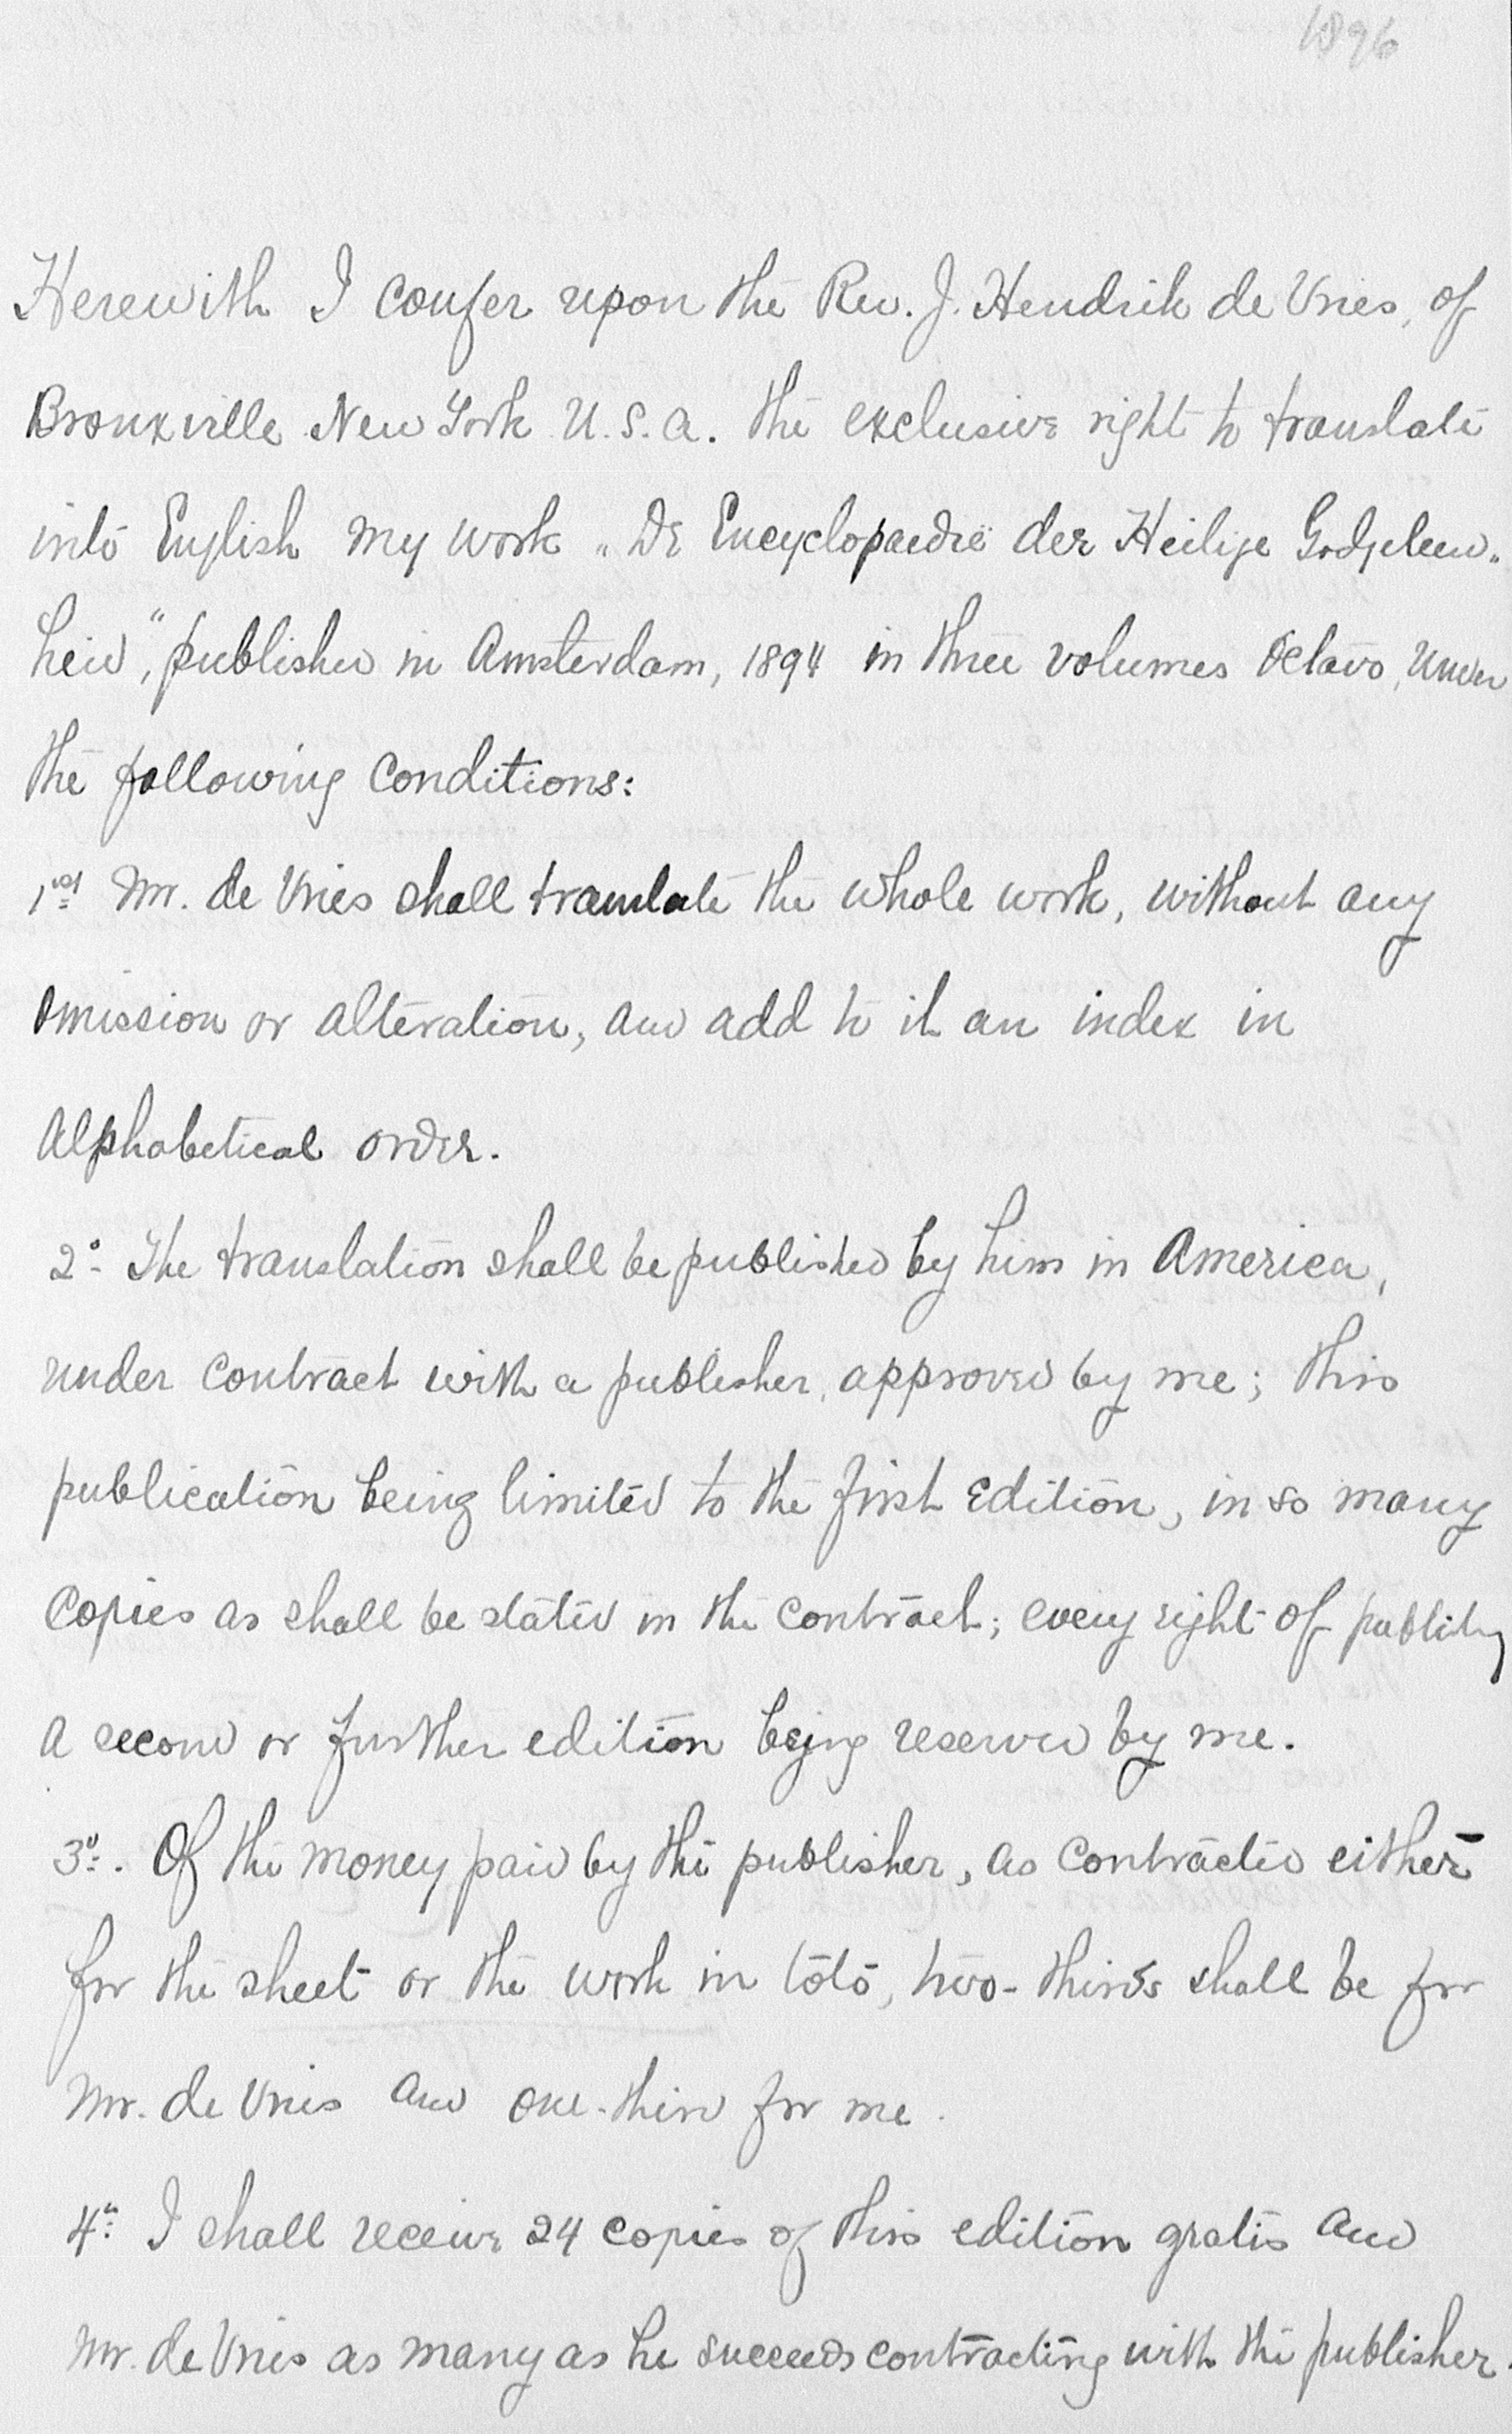 1896
Herewith I confer upon the Rev. J. Hendrik de Vries, of
Bronxville New York U.S.A. the exclusive right to translate
into English my work „De Encyclopaedie der Heilige Godgeleerd-
heid", published in Amsterdam, 1894 in three volumes Octavo, under
the following conditions:
1st Mr. de Vries shall translate the whole work, without any
omission or alteration, and add to it an index in
alphabetical order.
2o The translation shall be published by him in America,
under contract with a publisher, approved by me; this
publication being limited to the first edition, in so many
copies as shall be stated in the contract; every right of
a second or further edition being reserved by me.
3o. Of the money paid by the publisher, as contracted either
for the sheet or the work in toto, two-thirds shall be for
Mr. de Vries and one-third for me.
4o I shall receive 24 copies of this edition gratis and
Mr. de Vries as many as he succeeds contracting with the publisher.